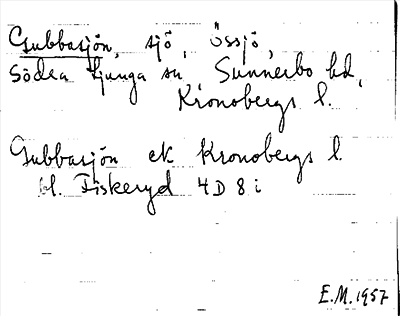 Gubbasjön, sjö, Össjö,
Södra Ljunga sn Sunnerbo hd,
Kronobergs l.
Gubbasjön ek Kronobergs l.
bl. Fiskeryd 4D 8i
E.M. 1957